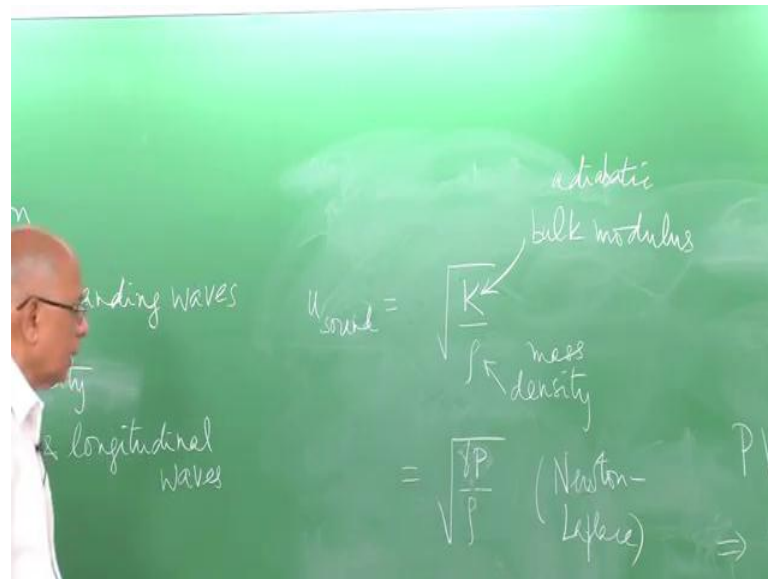 n
anding waves
ty
& longitudinal
waves
adiabatic
bulk modulus
u_sound = √(K/ρ)
mass
density
= √(γP/ρ) (Newton-
Laplace)
P
⇒